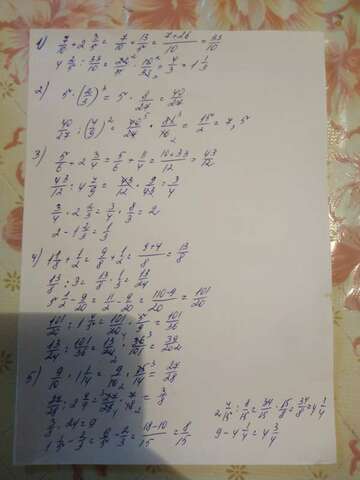 1) 7/10 + 2 3/5 = 7/10 + 13/5 = 7+26/10 = 33/10
4 2/5 : 33/10 = 22/5 · 10/33 = 4/3 = 1 1/3
2) 5 · (2/3)³ = 5 · 8/27 = 40/27
40/27 : (4/9)² = 40/27 · 81/16 = 15/2 = 7,5
3) 5/6 + 2 3/4 = 5/6 + 11/4 = 10+33/12 = 43/12
43/12 : 4 7/9 = 43/12 · 9/43 = 3/4
3/4 · 2 2/3 = 3/4 · 8/3 = 2
2 - 1 2/3 = 1/3
4) 1 1/8 + 1/2 = 9/8 + 1/2 = 9+4/8 = 13/8
13/8 : 3 = 13/8 · 1/3 = 13/24
5 1/2 - 9/20 = 11/2 - 9/20 = 110-9/20 = 101/20
101/20 : 1 4/5 = 101/20 · 5/9 = 101/36
13/24 : 101/36 = 13/24 · 36/101 = 39/202
5) 9/10 · 1 1/14 = 9/10 · 15/14 = 27/28
27/28 : 2 4/7 = 27/28 · 7/18 = 3/8
3/8 · 24 = 9
2 4/15 : 8/15 = 34/15 · 15/8 = 34/8 = 4 1/4
9 - 4 1/4 = 4 3/4